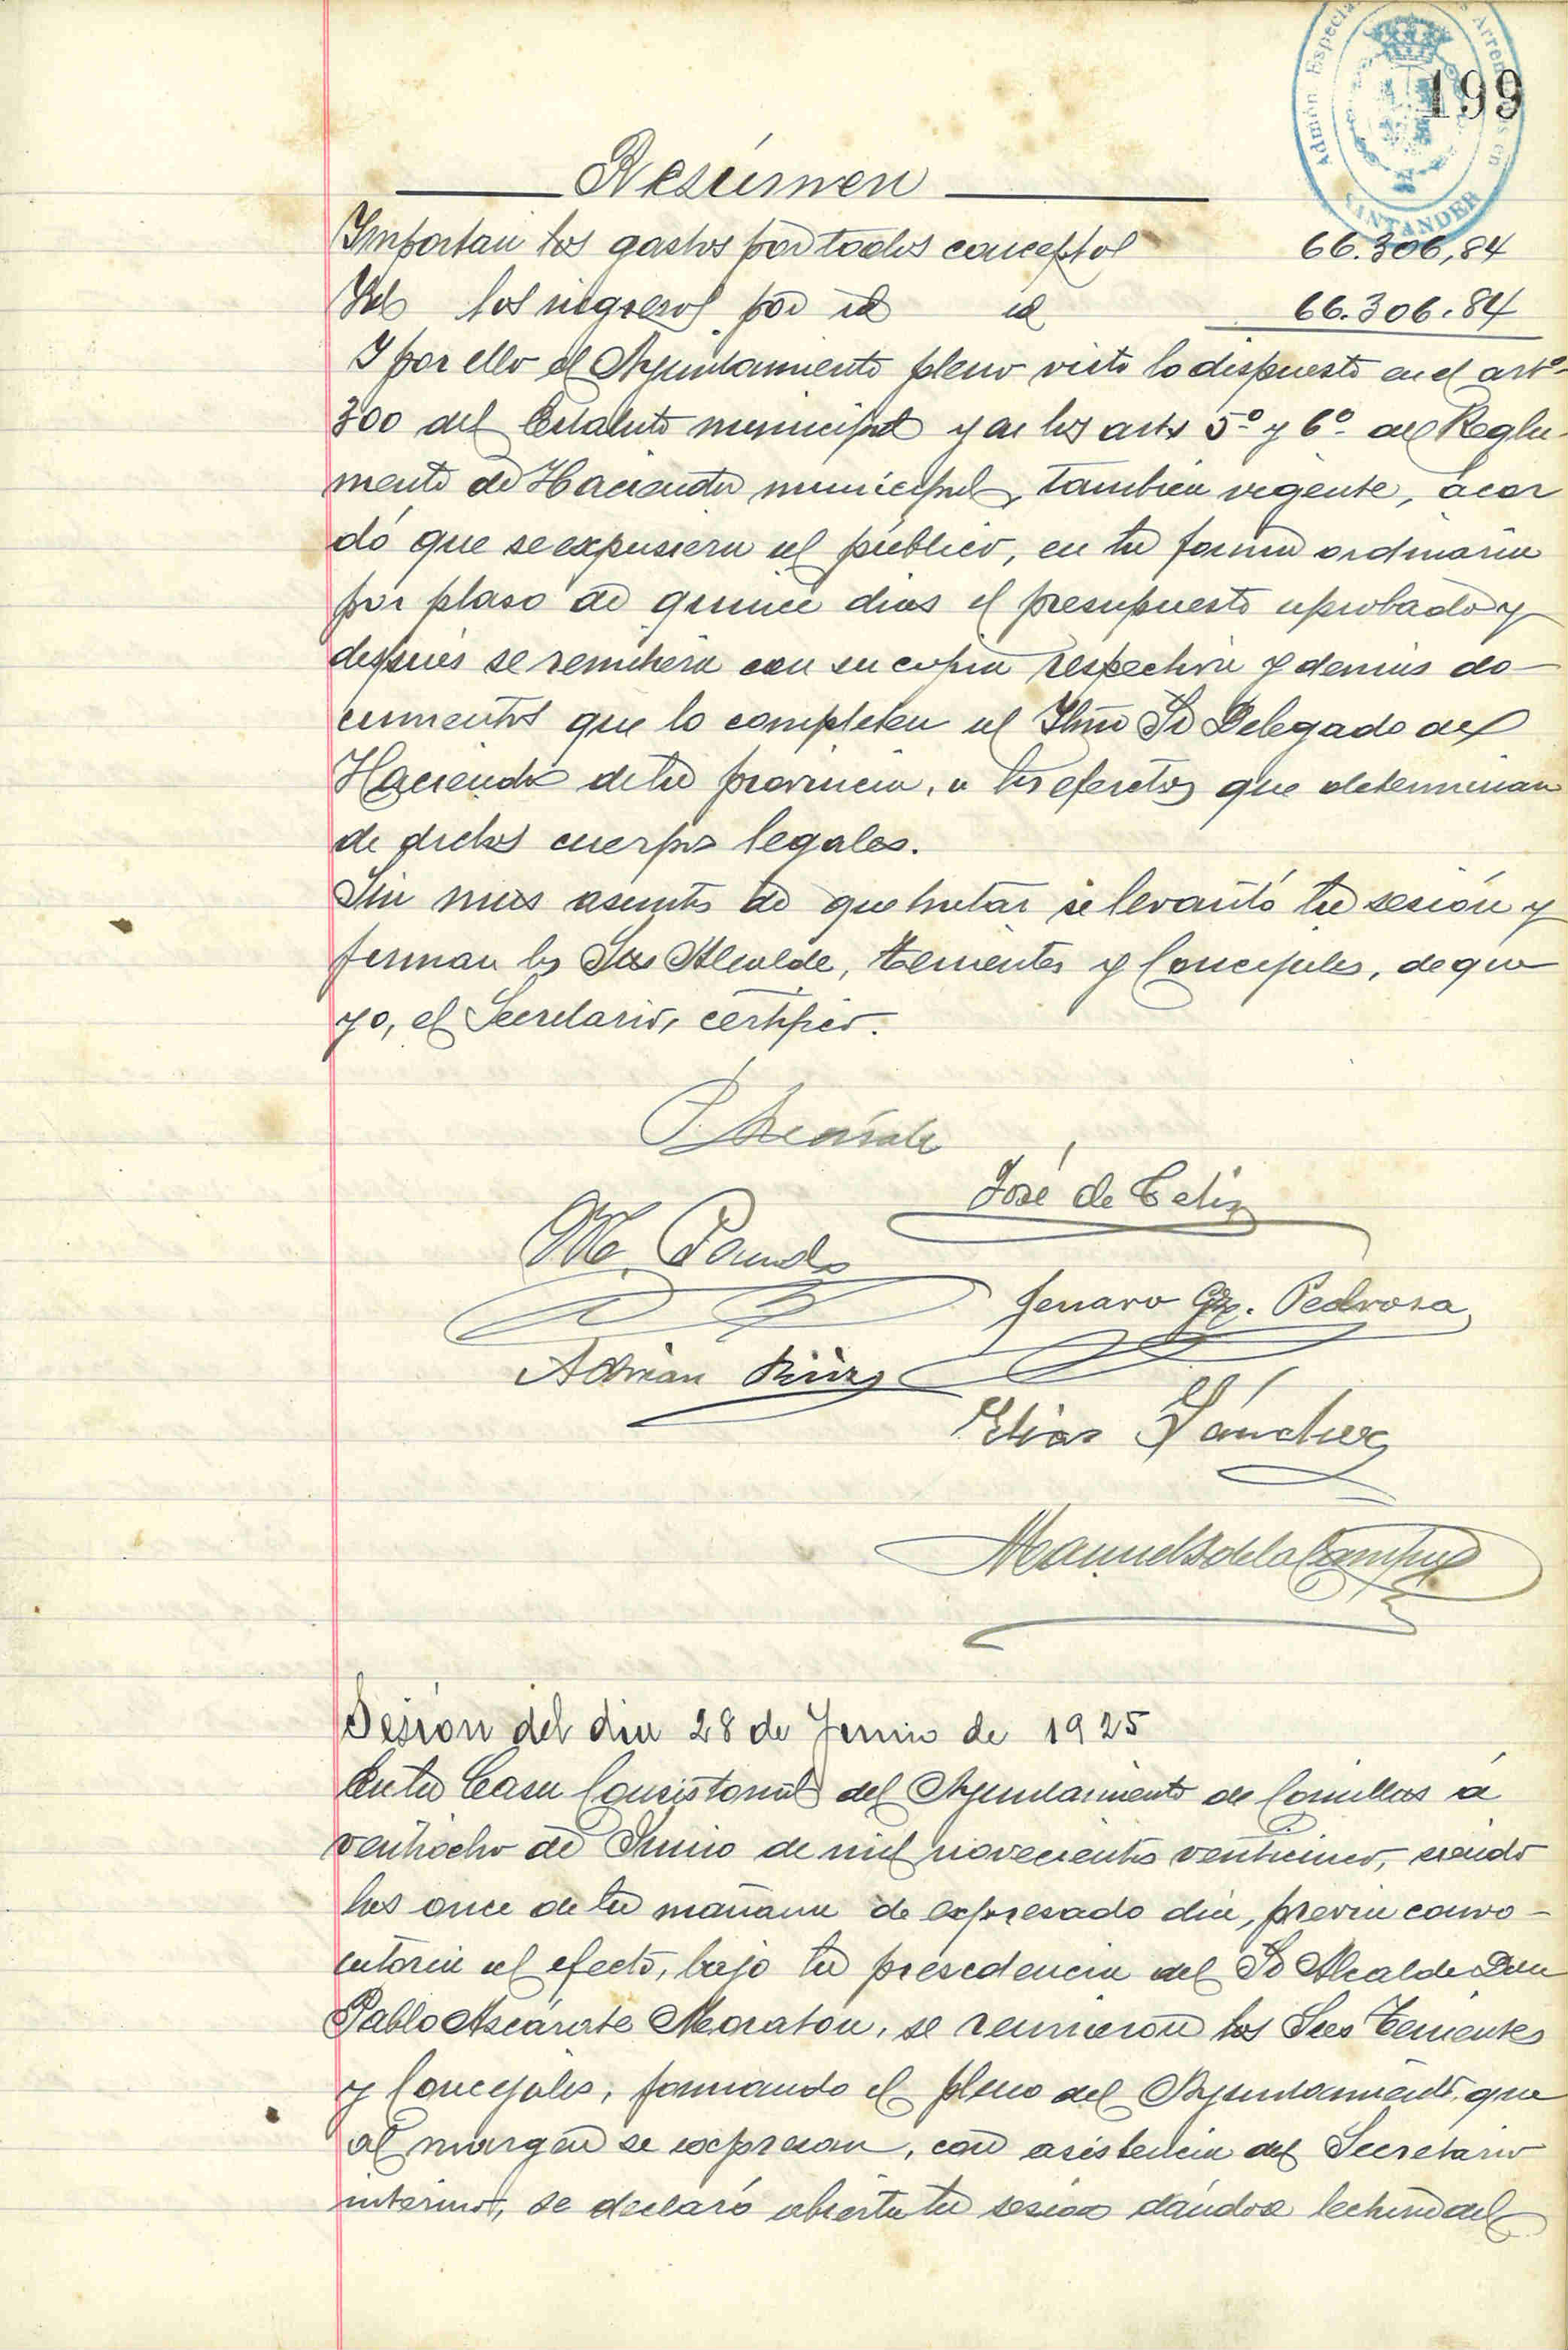 Admón Especial Arren en
SANTANDER
199
Resúmen
Importan los gastos por todos conceptos 66.306,84
Id los ingresos por id id 66.306.84
Y por ello el Ayuntamiento pleno visto lo dispuesto en el artº
300 del Estatuto municipal y en los arts 5º y 6º del Regla-
mento de Hacienda municipal, tambien vigente, acor
dó que se expusiera al público, en la forma ordinaria
por plaso de quince dias el presupuesto aprobado y
después se remitiera con su copia respectiva y demas do-
cumentos que lo completen al Ilmo Sr Delegado de
Hacienda de la provincia, a los efectos que determinan
de dichos cuerpos legales.
Sin mas asuntos de que tratar se levantó la sesión y
firman los Sres Alcalde, tenientes y Concejales, de que
yo, el Secretario, certifico.
P. Ascárate
José de Celis
M. Pomds
Jenaro Gz. Pedrosa
Adrian Ruiz
Elias Sánchez
Manuel S de la Campa
Sesion del dia 28 de Junio de 1925
En la Casa Consistorial del Ayuntamiento de Comillas á
ventiocho de Junio de mil novecientos venticinco, siendo
las once de la mañana de expresado dia, previa convo-
catoria al efecto, bajo la presedencia del Sr Alcalde Don
Pablo Ascárate Moraton, se reunieron los Sres Tenientes
y Concejales, formando el pleno del Ayuntamiento, que
al margen se expresan, con asistencia del Secretario
interino, se declaró abierta la sesion dándose lectura del